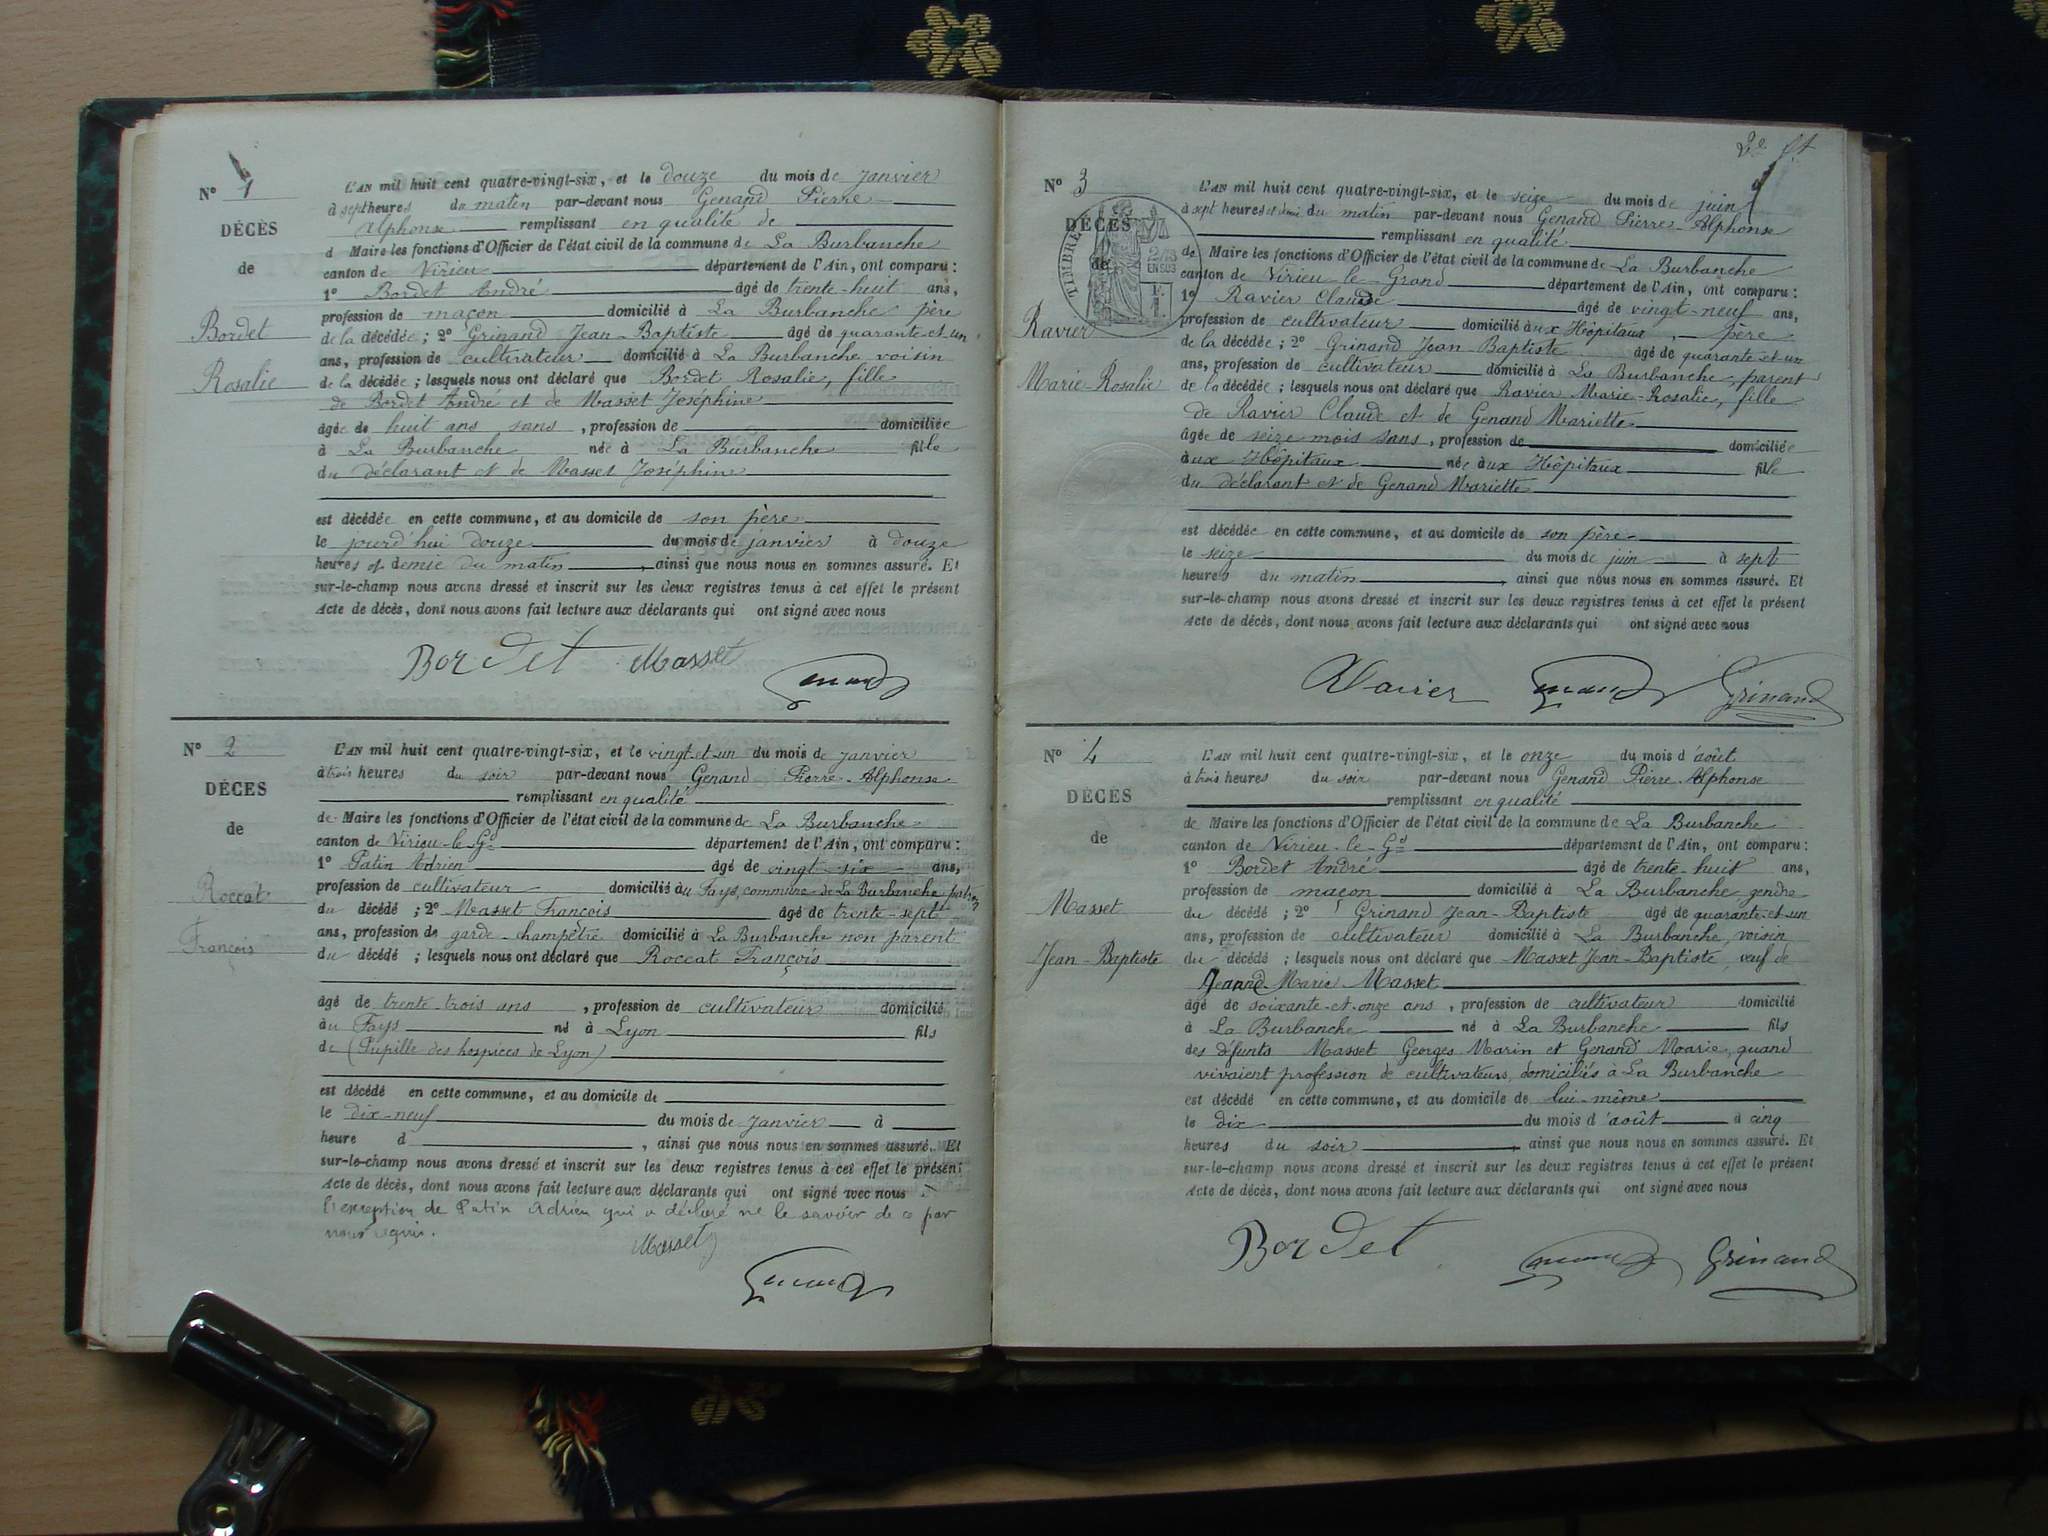 N° 1
DÉCÈS
de
Bordet
Rosalie
L'AN mil huit cent quatre-vingt-six, et le douze du mois de janvier
à sept heures du matin par-devant nous Genand Pierre
Alphonse remplissant en qualité de
d Maire les fonctions d'Officier de l'état civil de la commune de La Burbanche
canton de Virieu département de l'Ain, ont comparu :
1° Bordet André âgé de trente-huit ans,
profession de maçon domicilié à La Burbanche père
de la décédée ; 2° Grinand Jean-Baptiste âgé de quarante-et-un
ans, profession de cultivateur domicilié à La Burbanche voisin
de la décédée ; lesquels nous ont déclaré que Bordet Rosalie, fille
de Bordet André et de Masset Joséphine
âgée de huit ans sans , profession de domiciliée
à La Burbanche née à La Burbanche fille
du déclarant et de Masset Joséphine
est décédée en cette commune, et au domicile de son père
le jourd'hui douze du mois de janvier à douze
heures et demie du matin , ainsi que nous nous en sommes assuré. Et
sur-le-champ nous avons dressé et inscrit sur les deux registres tenus à cet effet le présent
Acte de décès, dont nous avons fait lecture aux déclarants qui ont signé avec nous
Bordet Masset Genand
N° 2
DÉCÈS
de
Roccat
François
L'AN mil huit cent quatre-vingt-six, et le vingt-et-un du mois de janvier
à trois heures du soir par-devant nous Genand Pierre-Alphonse
remplissant en qualité
de Maire les fonctions d'Officier de l'état civil de la commune de La Burbanche
canton de Virieu-le-Gd département de l'Ain, ont comparu :
1° Patin Adrien âgé de vingt-six ans,
profession de cultivateur domicilié au Fays, commune de La Burbanche patron
du décédé ; 2° Masset François âgé de trente-sept
ans, profession de garde-champêtre domicilié à La Burbanche non parent
du décédé ; lesquels nous ont déclaré que Roccat François
âgé de trente-trois ans , profession de cultivateur domicilié
au Fays né à Lyon fils
de (Pupille des hospices de Lyon)
est décédé en cette commune, et au domicile de
le dix-neuf du mois de janvier à
heure d , ainsi que nous nous en sommes assuré. Et
sur-le-champ nous avons dressé et inscrit sur les deux registres tenus à cet effet le présent
Acte de décès, dont nous avons fait lecture aux déclarants qui ont signé avec nous à
l'exception de Patin Adrien qui a déclaré ne le savoir de ce par
nous requis.
Masset
Genand
2e ft
N° 3
DÉCÈS
de
Ravier
Marie-Rosalie
TIMBRE
2/10
EN SUS
L'AN mil huit cent quatre-vingt-six, et le seize du mois de juin
à sept heures et demi du matin par-devant nous Genand Pierre-Alphonse
remplissant en qualité
de Maire les fonctions d'Officier de l'état civil de la commune de La Burbanche
canton de Virieu-le-Grand département de l'Ain, ont comparu :
1° Ravier Claude âgé de vingt-neuf ans,
profession de cultivateur domicilié aux Hôpitaux, père
de la décédée ; 2° Grinand Jean Baptiste âgé de quarante-et-un
ans, profession de cultivateur domicilié à La Burbanche, parent
de la décédée ; lesquels nous ont déclaré que Ravier Marie-Rosalie, fille
de Ravier Claude et de Genand Mariette
âgée de seize mois sans , profession de domiciliée
aux Hôpitaux née aux Hôpitaux fille
du déclarant et de Genand Mariette
est décédée en cette commune, et au domicile de son père
le seize du mois de juin à sept
heures du matin , ainsi que nous nous en sommes assuré. Et
sur-le-champ nous avons dressé et inscrit sur les deux registres tenus à cet effet le présent
Acte de décès, dont nous avons fait lecture aux déclarants qui ont signé avec nous
Ravier Genand Grinand
N° 4
DÉCÈS
de
Masset
Jean-Baptiste
L'AN mil huit cent quatre-vingt-six, et le onze du mois d'août
à trois heures du soir par-devant nous Genand Pierre Alphonse
remplissant en qualité
de Maire les fonctions d'Officier de l'état civil de la commune de La Burbanche
canton de Virieu-le-Gd département de l'Ain, ont comparu :
1° Bordet André âgé de trente-huit ans,
profession de maçon domicilié à La Burbanche gendre
du décédé ; 2° Grinand Jean-Baptiste âgé de quarante-et-un
ans, profession de cultivateur domicilié à La Burbanche, voisin
du décédé ; lesquels nous ont déclaré que Masset Jean-Baptiste, veuf de
Marie Masset
âgé de soixante-et-onze ans , profession de cultivateur domicilié
à La Burbanche né à La Burbanche fils
des défunts Masset Georges Marin et Genand Marie, quand
vivaient profession de cultivateurs, domiciliés à La Burbanche
est décédé en cette commune, et au domicile de lui-même
le dix du mois d'août à cinq
heures du soir , ainsi que nous nous en sommes assuré. Et
sur-le-champ nous avons dressé et inscrit sur les deux registres tenus à cet effet le présent
Acte de décès, dont nous avons fait lecture aux déclarants qui ont signé avec nous
Bordet Genand Grinand